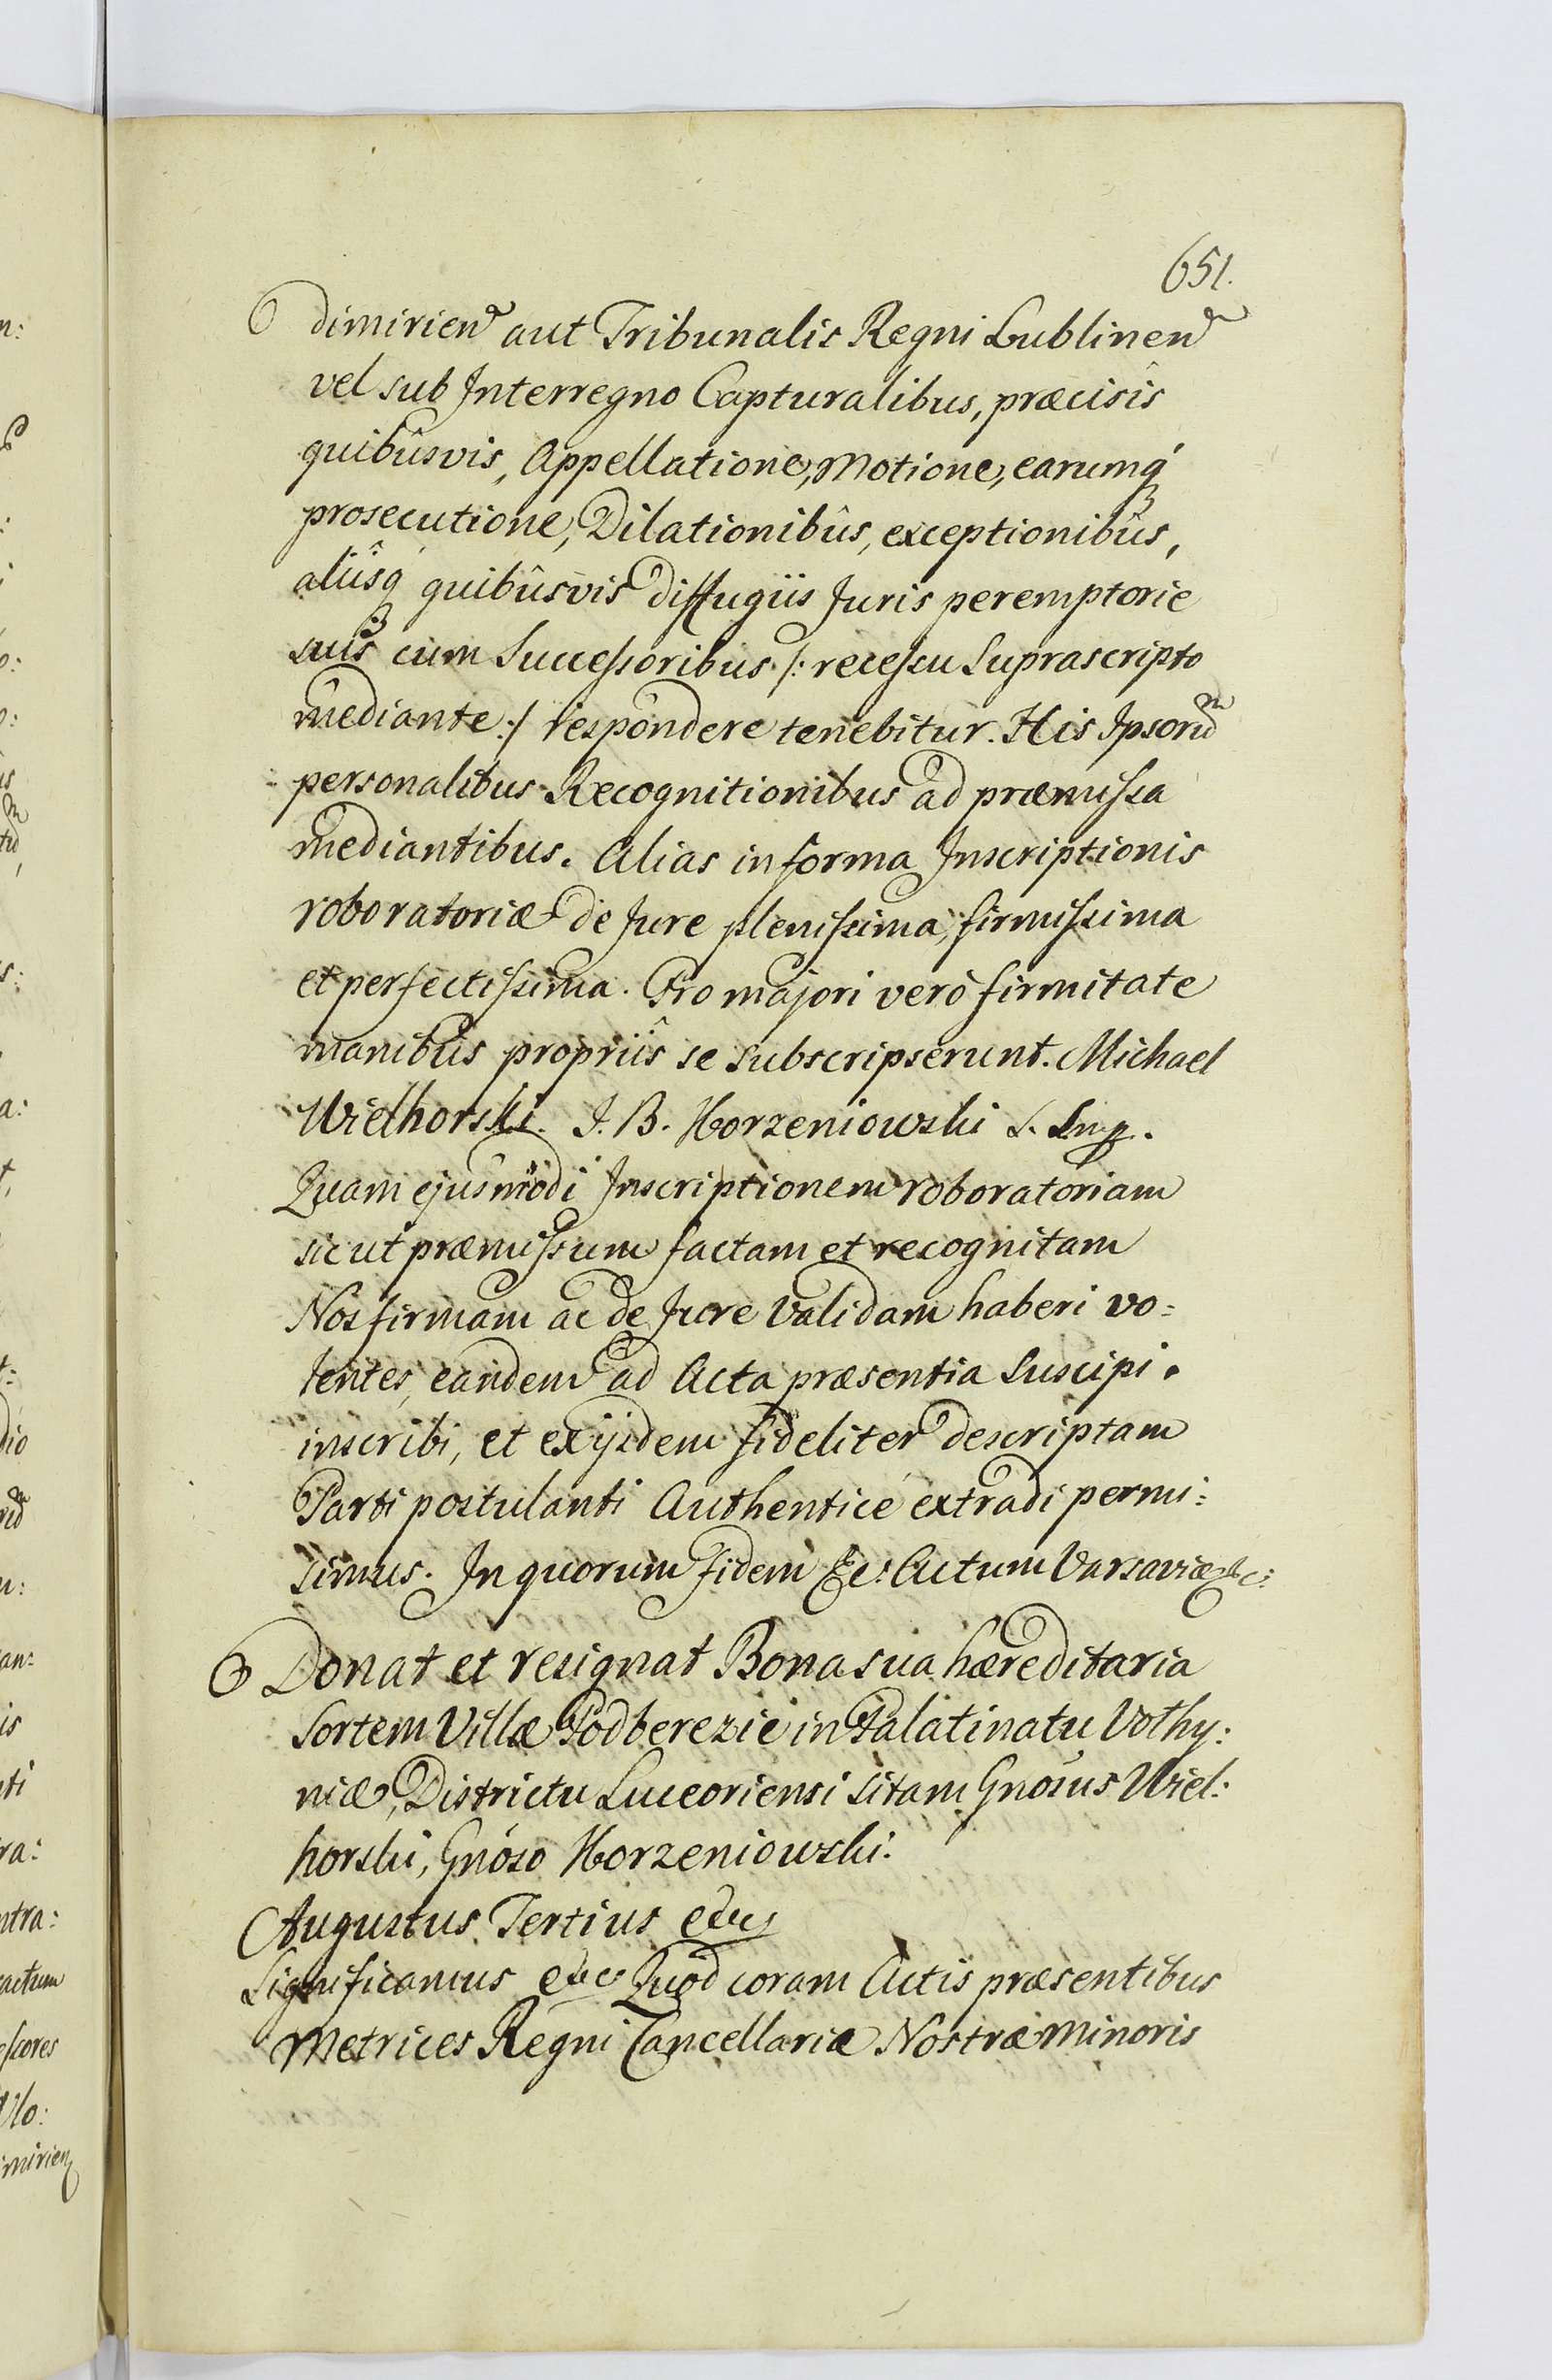 651.
dimirien aut Tribunalis Regni Lublinen
vel sub Interregno Capturalibus, præcisis
quibûsvis, Appellatione, Motione, earumq́
prosecutione, Dilationibûs, exceptionibûs,
aliisq́ quibûsvis diffugiis Juris peremptorie
suis cum Successoribus /: recessu Suprascripto
mediante :/ respondere tenebitur. His Ipsorũ
personalibus Recognitionibus ad præmissa
mediantibus. Alias in forma Inscriptionis
roboratoriæ de Jure plenissima, firmissima
et perfectissima. Pro majori verò firmitate
manibûs propriis se subscripserunt. Michael
Wielhorski. J. B. Korzeniowski S. Lmp.
Quam ejusmodi Inscriptionem roboratoriam
sicut præmissum factam et recognitam
Nos firmam ac de Jure Validam haberi vo=
lentes, eandem ad Acta præsentia Suscipi.
inscribi, et ex ijsdem fideliter descriptam
Parti postulanti Authenticè extradi permi=
simus. In quorum fidem &c: Actum Varsaviæ &c:
Donat et resignat Bona sua hæreditaria
Sortem Villæ Podberezie in Palatinatu Volhy:
niæ, Districtu Luceoriensi Sitam Gnósus Wiel:
horski, Gnóso Korzeniowski.
Augustus Tertius &c
Significamus &c Quod coram Actis præsentibus
Metrices Regni Cancellariæ Nostræ Minoris